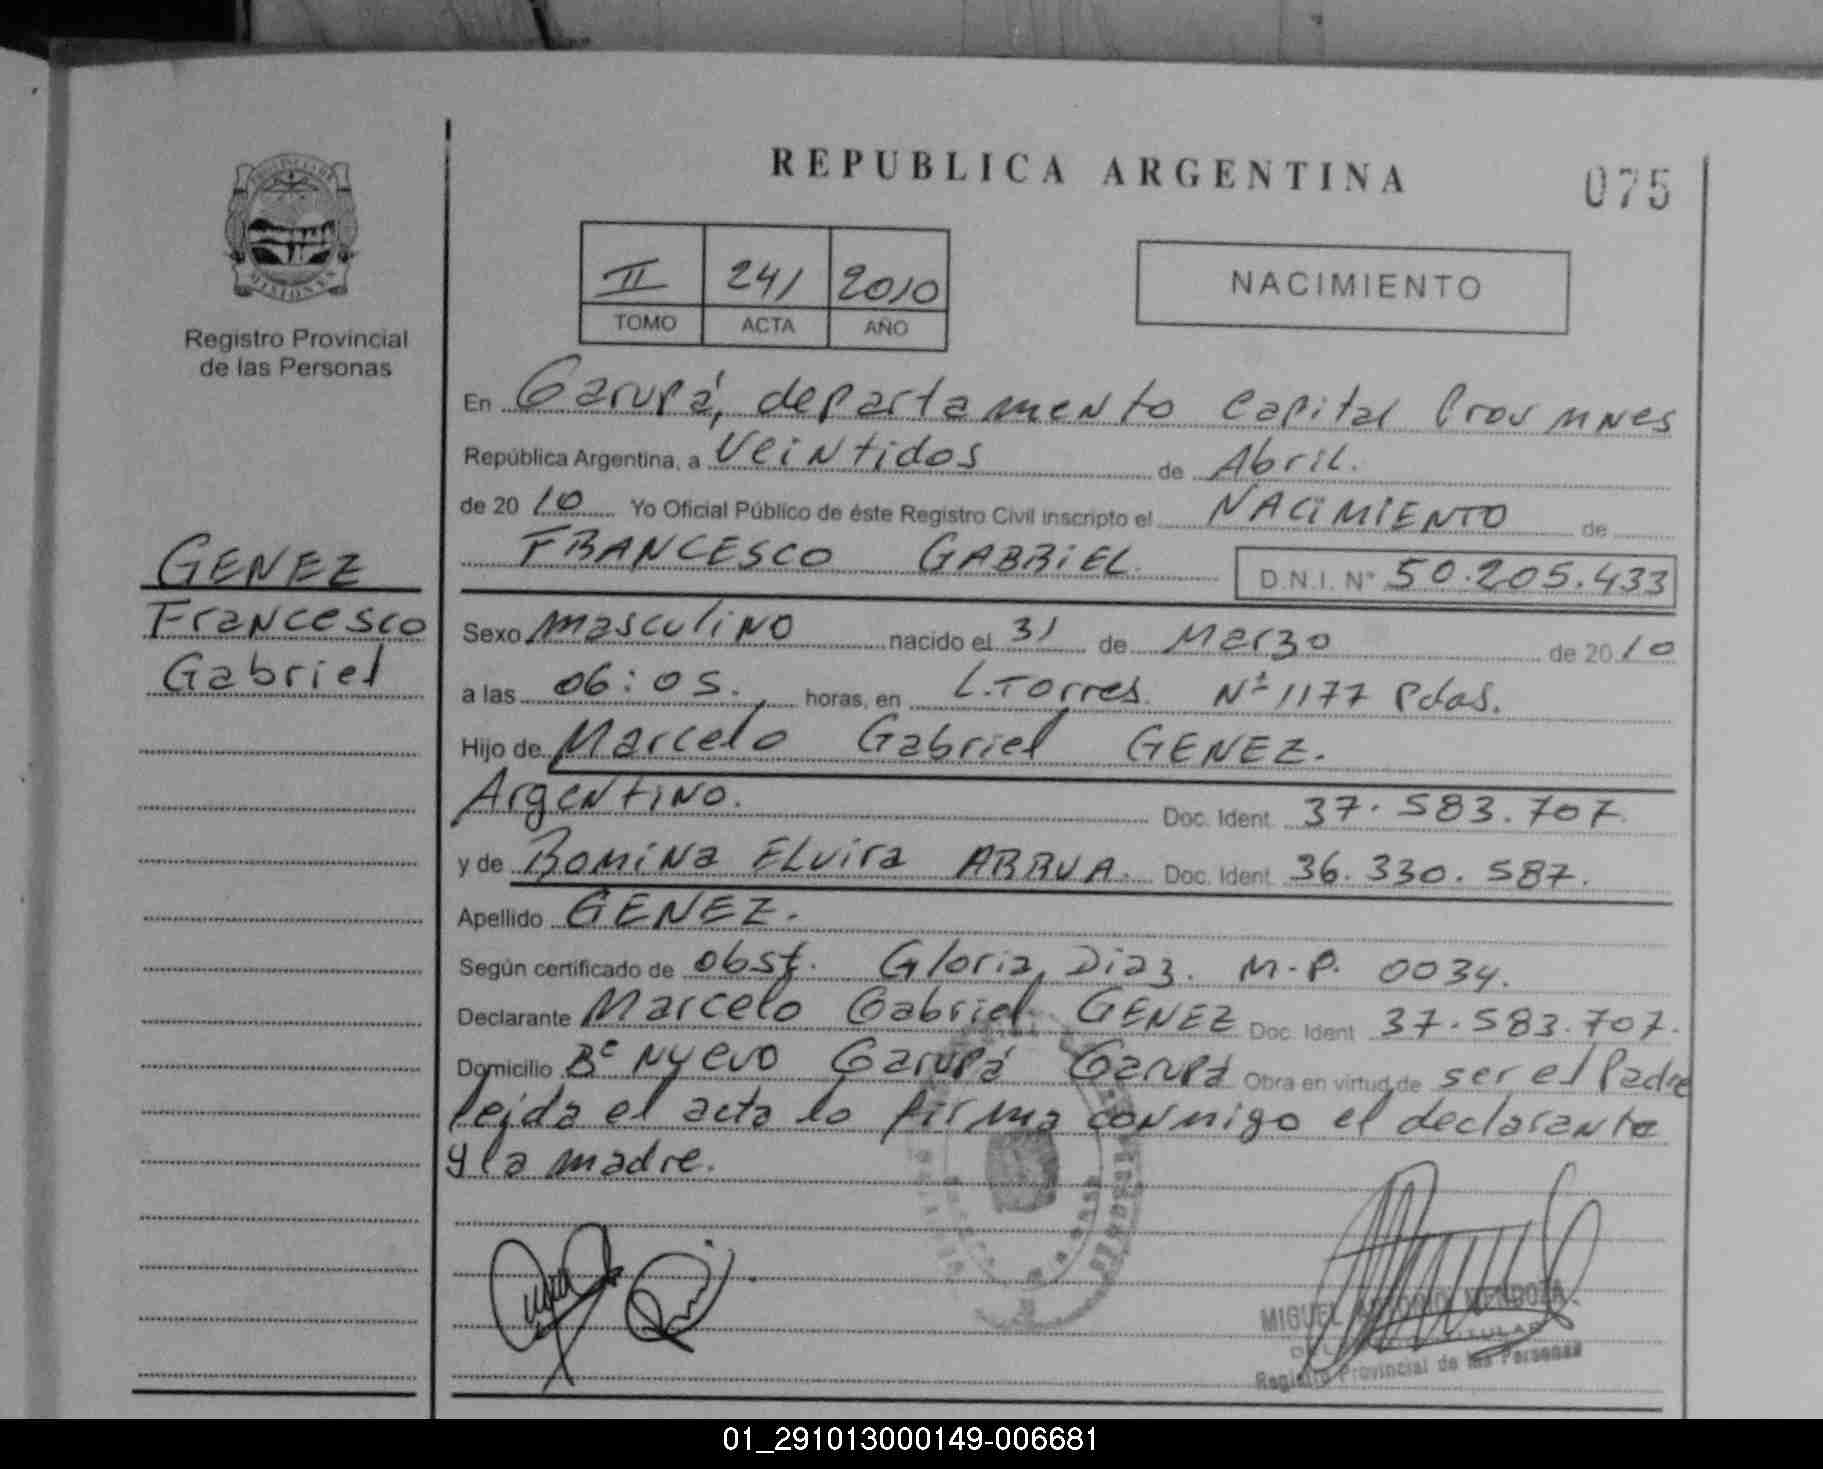 REPUBLICA ARGENTINA
075
MISIONES
Registro Provincial
de las Personas
II 241 2010
TOMO ACTA AÑO
NACIMIENTO
En Garupá, departamento Capital Prov Mnes
República Argentina, a Veintidos de Abril.
de 2010 Yo Oficial Público de éste Registro Civil inscripto el NACIMIENTO de
FRANCESCO GABRIEL. D.N.I. Nº 50.205.433
GENEZ
Francesco
Gabriel
Sexo masculino nacido el 31 de Marzo de 2010
a las 06:05. horas, en L.Torres. Nº 1177 Pdas.
Hijo de Marcelo Gabriel GENEZ.
Argentino. Doc. Ident. 37.583.707.
y de Romina Elvira ARRUA. Doc. Ident. 36.330.587.
Apellido GENEZ.
Según certificado de obst. Gloria Diaz. M.P. 0034.
Declarante Marcelo Gabriel GENEZ Doc. Ident. 37.583.707.
Domicilio Bº Nuevo Garupá Garupá Obra en virtud de ser el Padre
leida el acta lo firma conmigo el declarante
y la madre.
MIGUEL ANTONIO MENDOZA
TITULAR
Registro Provincial de las Personas
01_291013000149-006681